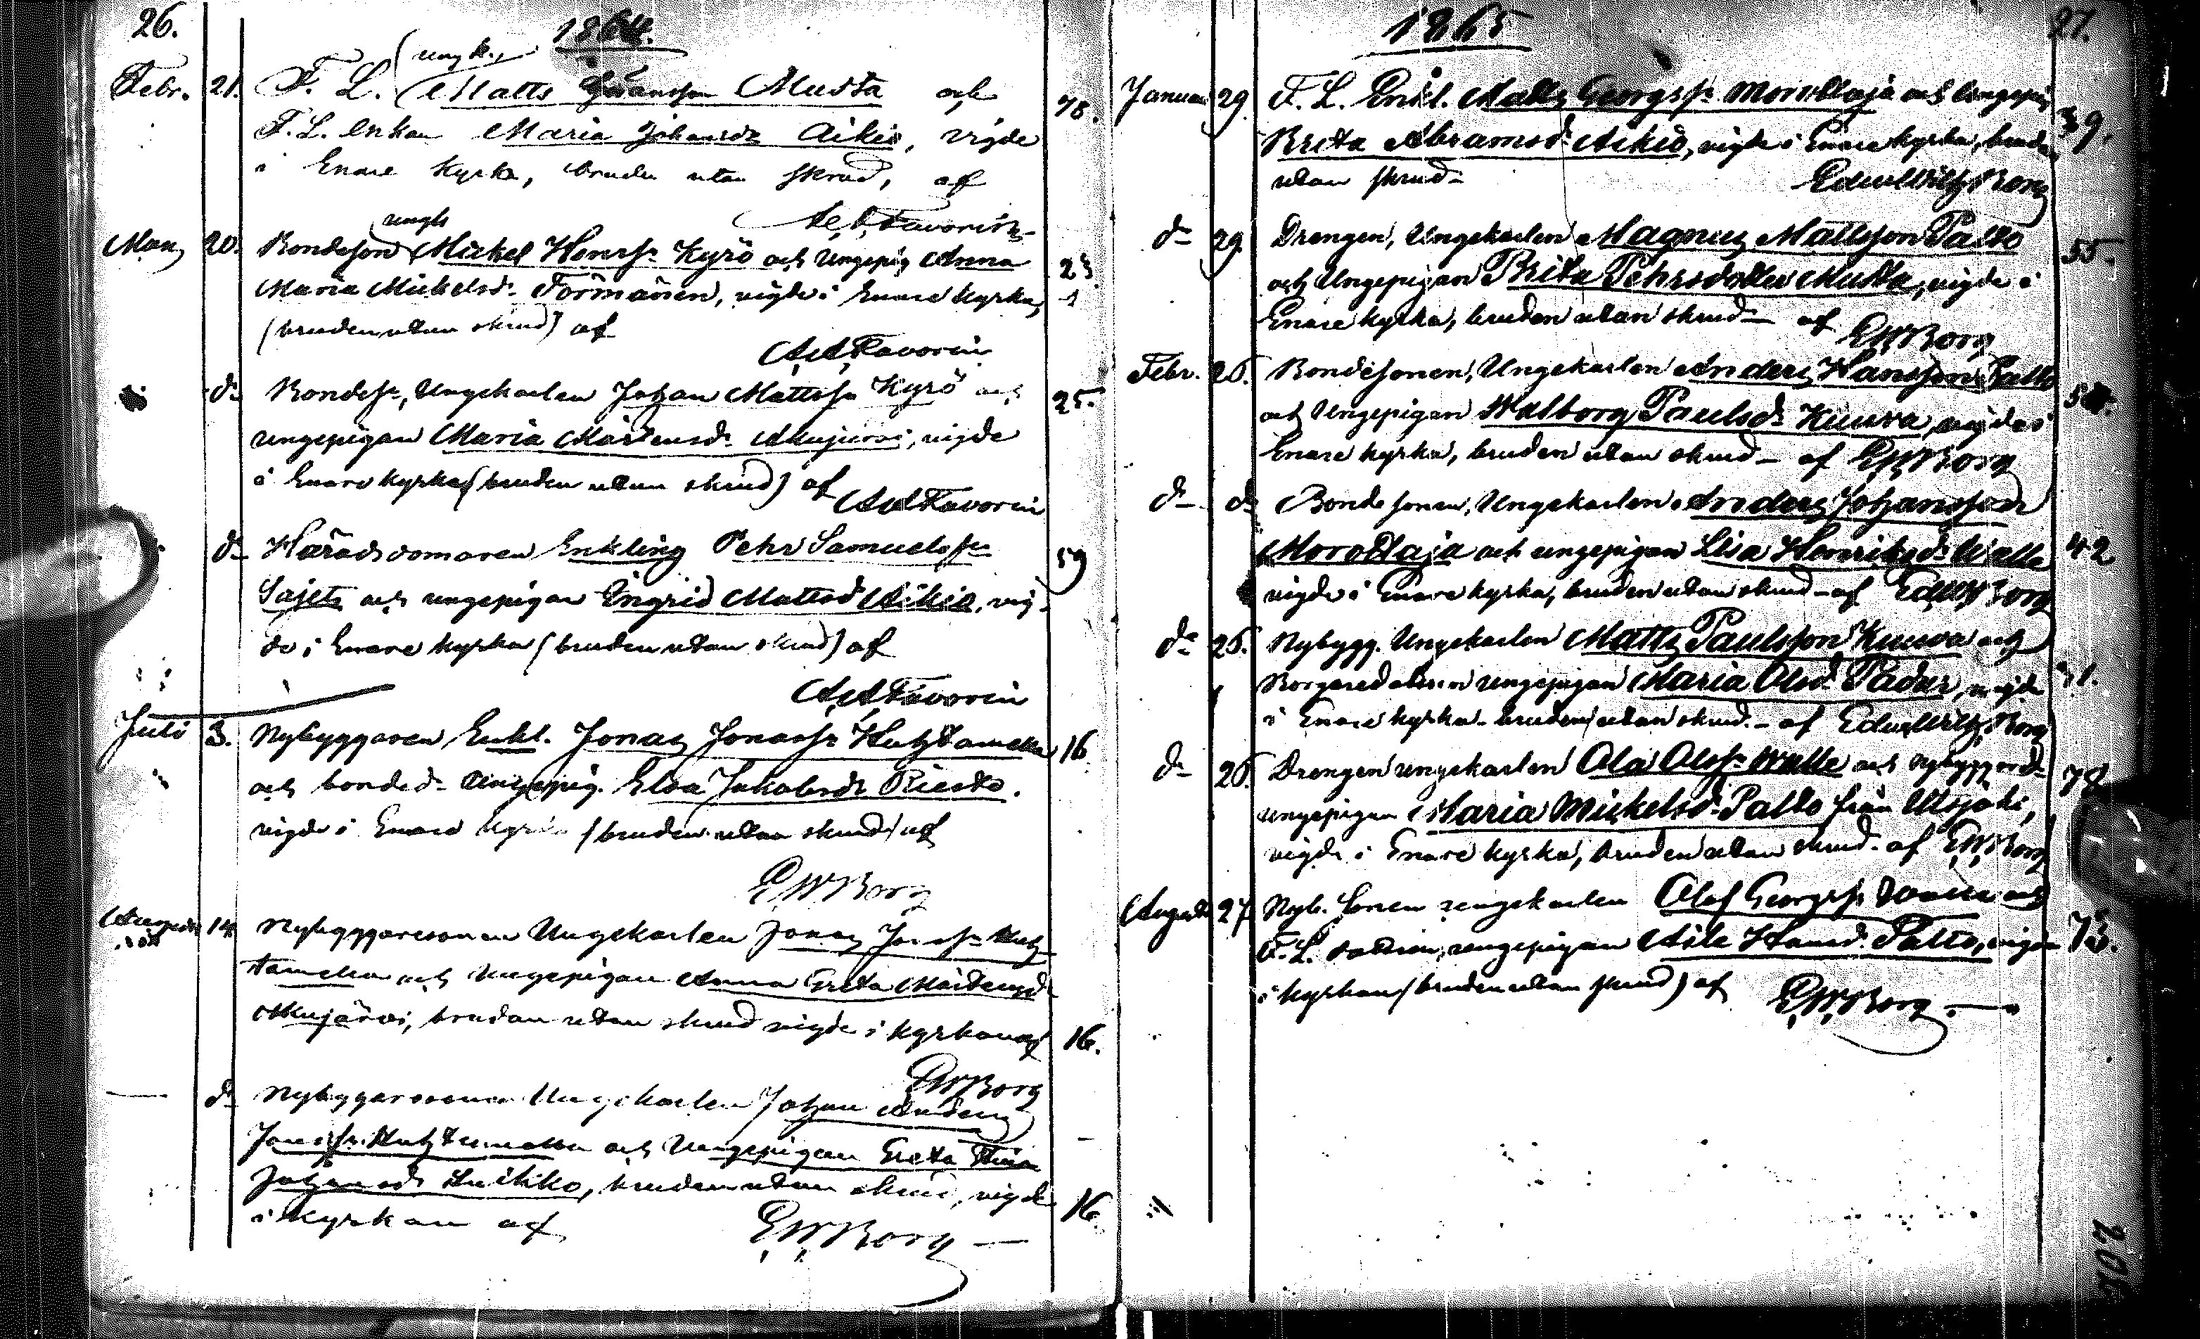 26.
1864.
ungk.
Febr. 21. F. L. Matts Musta och
78.
F. L. Enkan Maria Johansdr Aikio, vigde
i Enare Kyrka, bruden utan skrud, af
A. A. Favorin
ungk
Mars 20. Bondeson Mickel Henrss. Kyrö och Ungepig. Anna
23
Maria Mickelsd. Törmänen, vigde i Enare kyrka,
(bruden utan skrud) af
A. A. Favorin
do Bondes., Ungekarlen Johan Mattss. Kyrö och
25.
ungepigan Maria Mårtensd. Mujärvi, vigde
i Enare kyrka (bruden utan skrud) af
A. A. Favorin
do Häradsdomaren Enkling Pehr Samuelss.
59
Sajets och ungepigan Ingrid Mattsd Aikio, vig-
de i Enare kyrka (bruden utan skrud) af
A. A. Favorin
Juli 3. Nybyggaren Enkl. Jonas Jonass. Huhtamella
16
och bonded. Ungepig. Elsa Jakobsdr Riesto.
vigde i Enare kyrka (bruden utan skrud) af
E. W. Borg
Augusti 14. Nybyggaresonen Ungekarlen Jonas Jonass. Huh-
tamella och Ungepigan Anna Greta Mårtensd.
Mujärvi, bruden utan skrud vigde i kyrkan af
16.
E. W. Borg
do Nybyggaresonen Ungekarlen Johan Anders
Jonass. Huhtamella och Ungepigan Greta Stina
Johansdr, bruden utan skrud, vigde
16.
i kyrkan af
E. W. Borg
1865
27.
Januari 29. F. L. Enkl. Matts Georgss. Morottaja och Ungepig.
39.
Brita Abramsd. Aikio, vigde i Enare kyrka, bruden
utan skrud Edv. Wilh. Borg
do 29. Drengen, Ungekarlen Magnus Mattsson Palto
55.
och Ungepigan Brita Pehrsdotter Musta, vigde i
Enare kyrka, bruden utan skrud af E. W. Borg
Febr. 26. Bondesonen, Ungekarlen Anders Hansson Palto
och Ungepigan Walborg Paulsd. Kuuva, vigde i
Enare kyrka, bruden utan skrud af E. W. Borg
do do Bondesonen, Ungekarlen Anders Johansson
Morottaja och ungepigan Lisa Henriksd. Walle
42
vigde i Enare kyrka, bruden utan skrud af Edv. W. Borg
do 26. Nybygg. Ungekarlen Matts Paulsson Kuuva och
ungepigan Maria Olsd. Padar, vigde
i Enare kyrka bruden utan skrud. af Edv. Wilh. Borg
do 26. Drengen ungekarlen Ola Olss. Walle och nybyggared.
78
ungepigan Maria Mickelsd. Palto från Utsjoki,
vigde i Enare kyrka, bruden utan skrud. af E. W. Borg
Augusti 27. Nyb. sonen ungekarlen Olof Georgss. och
F. L. ungepigan Aile Hansd. Palto, vigde
73.
i kyrkan (bruden utan skrud) af E. W. Borg.
202